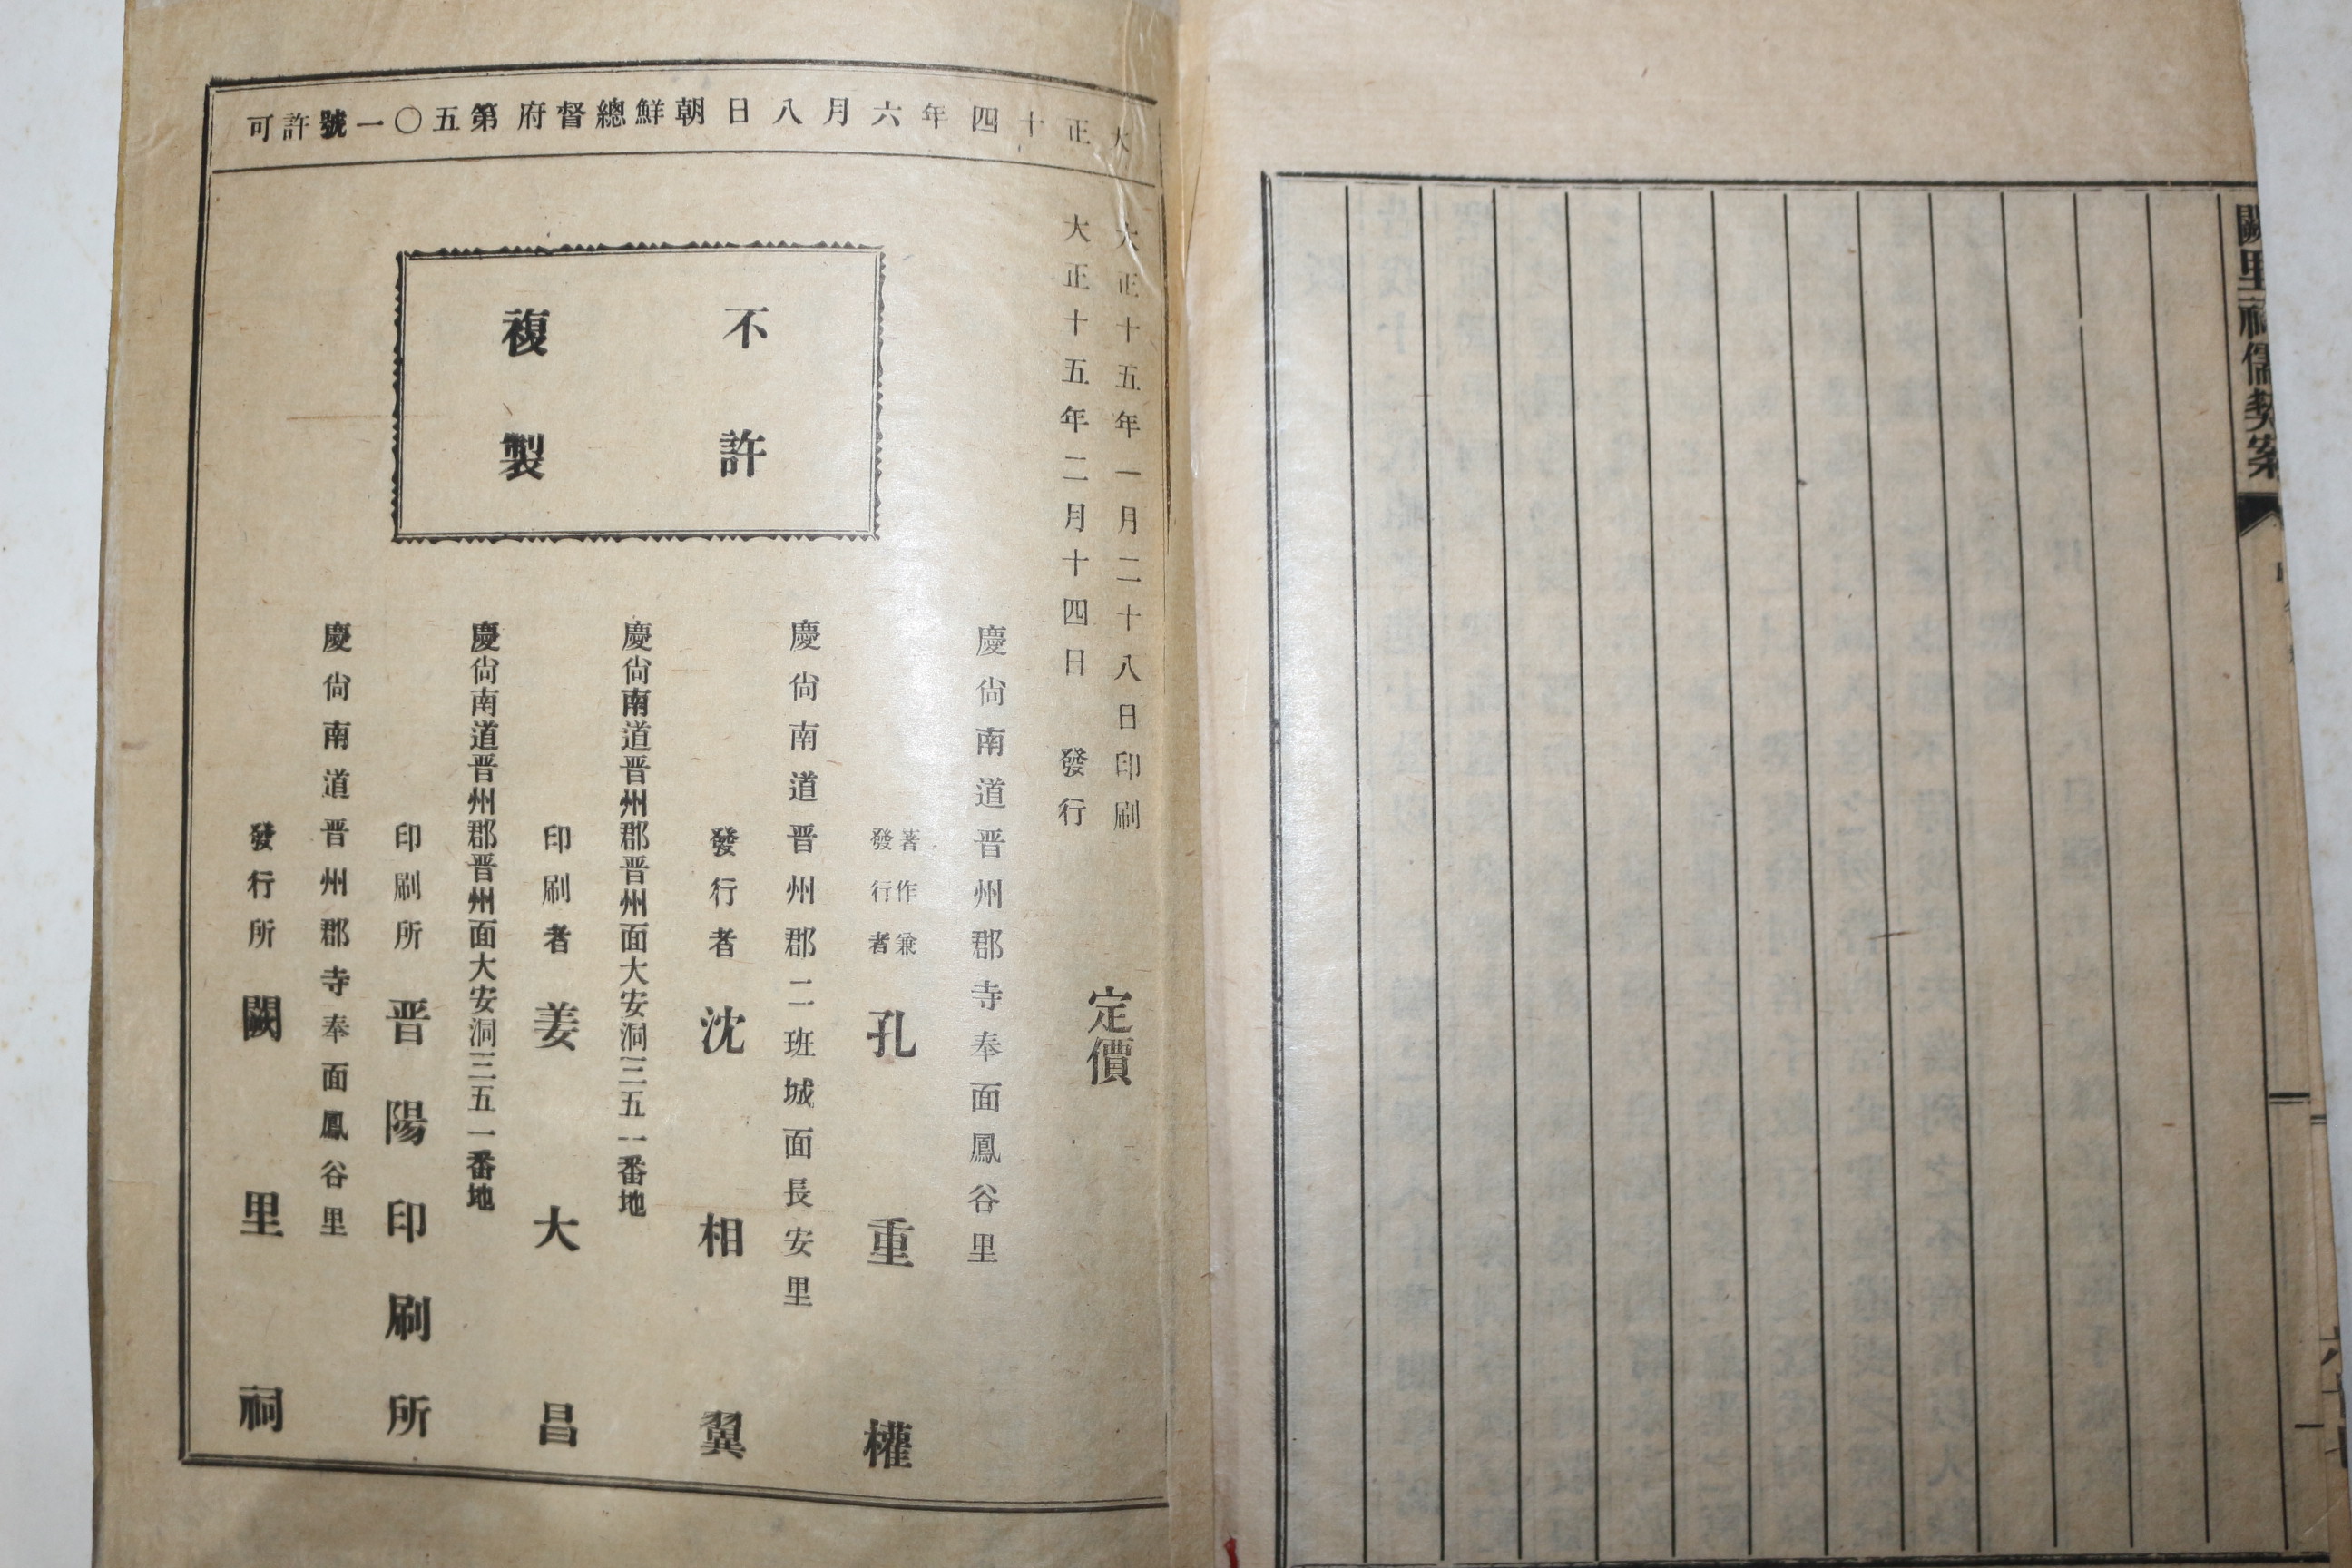 闕里祠儒契案
大正十四年六月八日朝鮮總督府第五〇一號許可
大正十五年一月二十八日印刷
大正十五年二月十四日發行
定價
不許
複製
慶尙南道晋州郡寺奉面鳳谷里
著作兼
發行者
孔重權
慶尙南道晋州郡二班城面長安里
發行者 沈相翼
慶尙南道晋州郡晋州面大安洞三五一番地
印刷者 姜大昌
慶尙南道晋州郡晋州面大安洞三五一番地
印刷所 晋陽印刷所
慶尙南道晋州郡寺奉面鳳谷里
發行所 闕里祠